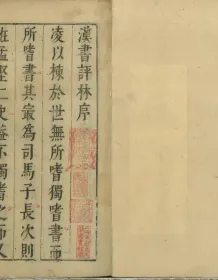 漢書評林序
凌以棟於世無所嗜獨嗜書而
所嗜書其最為司馬子長次則
班孟堅二史蓋不獨嗜之而又